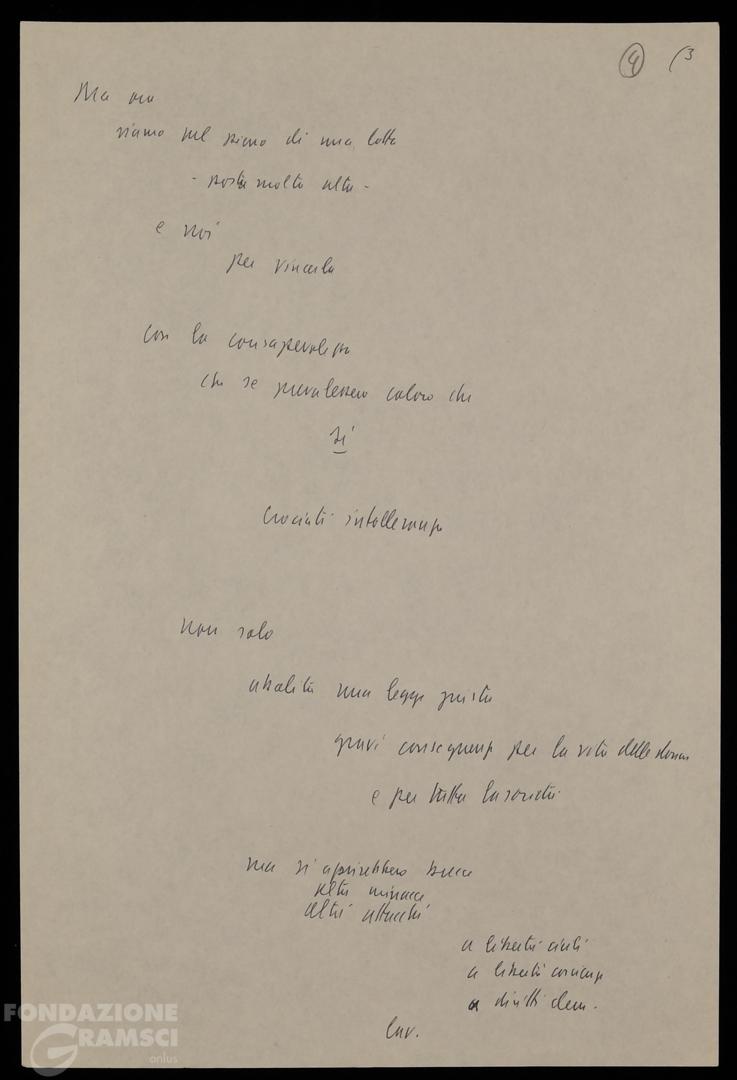 4 (3
Ma ora
siamo nel pieno di una lotta
- posta molto alta -
e noi
per vincerla
con la consapevolezza
che se prevalessero coloro che
sì
Crociati intolleranza
non solo
abolita una legge giusta
gravi conseguenze per la vita delle donne
e per tutta la società
ma si aprirebbero
altre minacce
altri attacchi
a libertà civili
a libertà coscienza
a diritti dem.
Lav.
FONDAZIONE
GRAMSCI
onlus